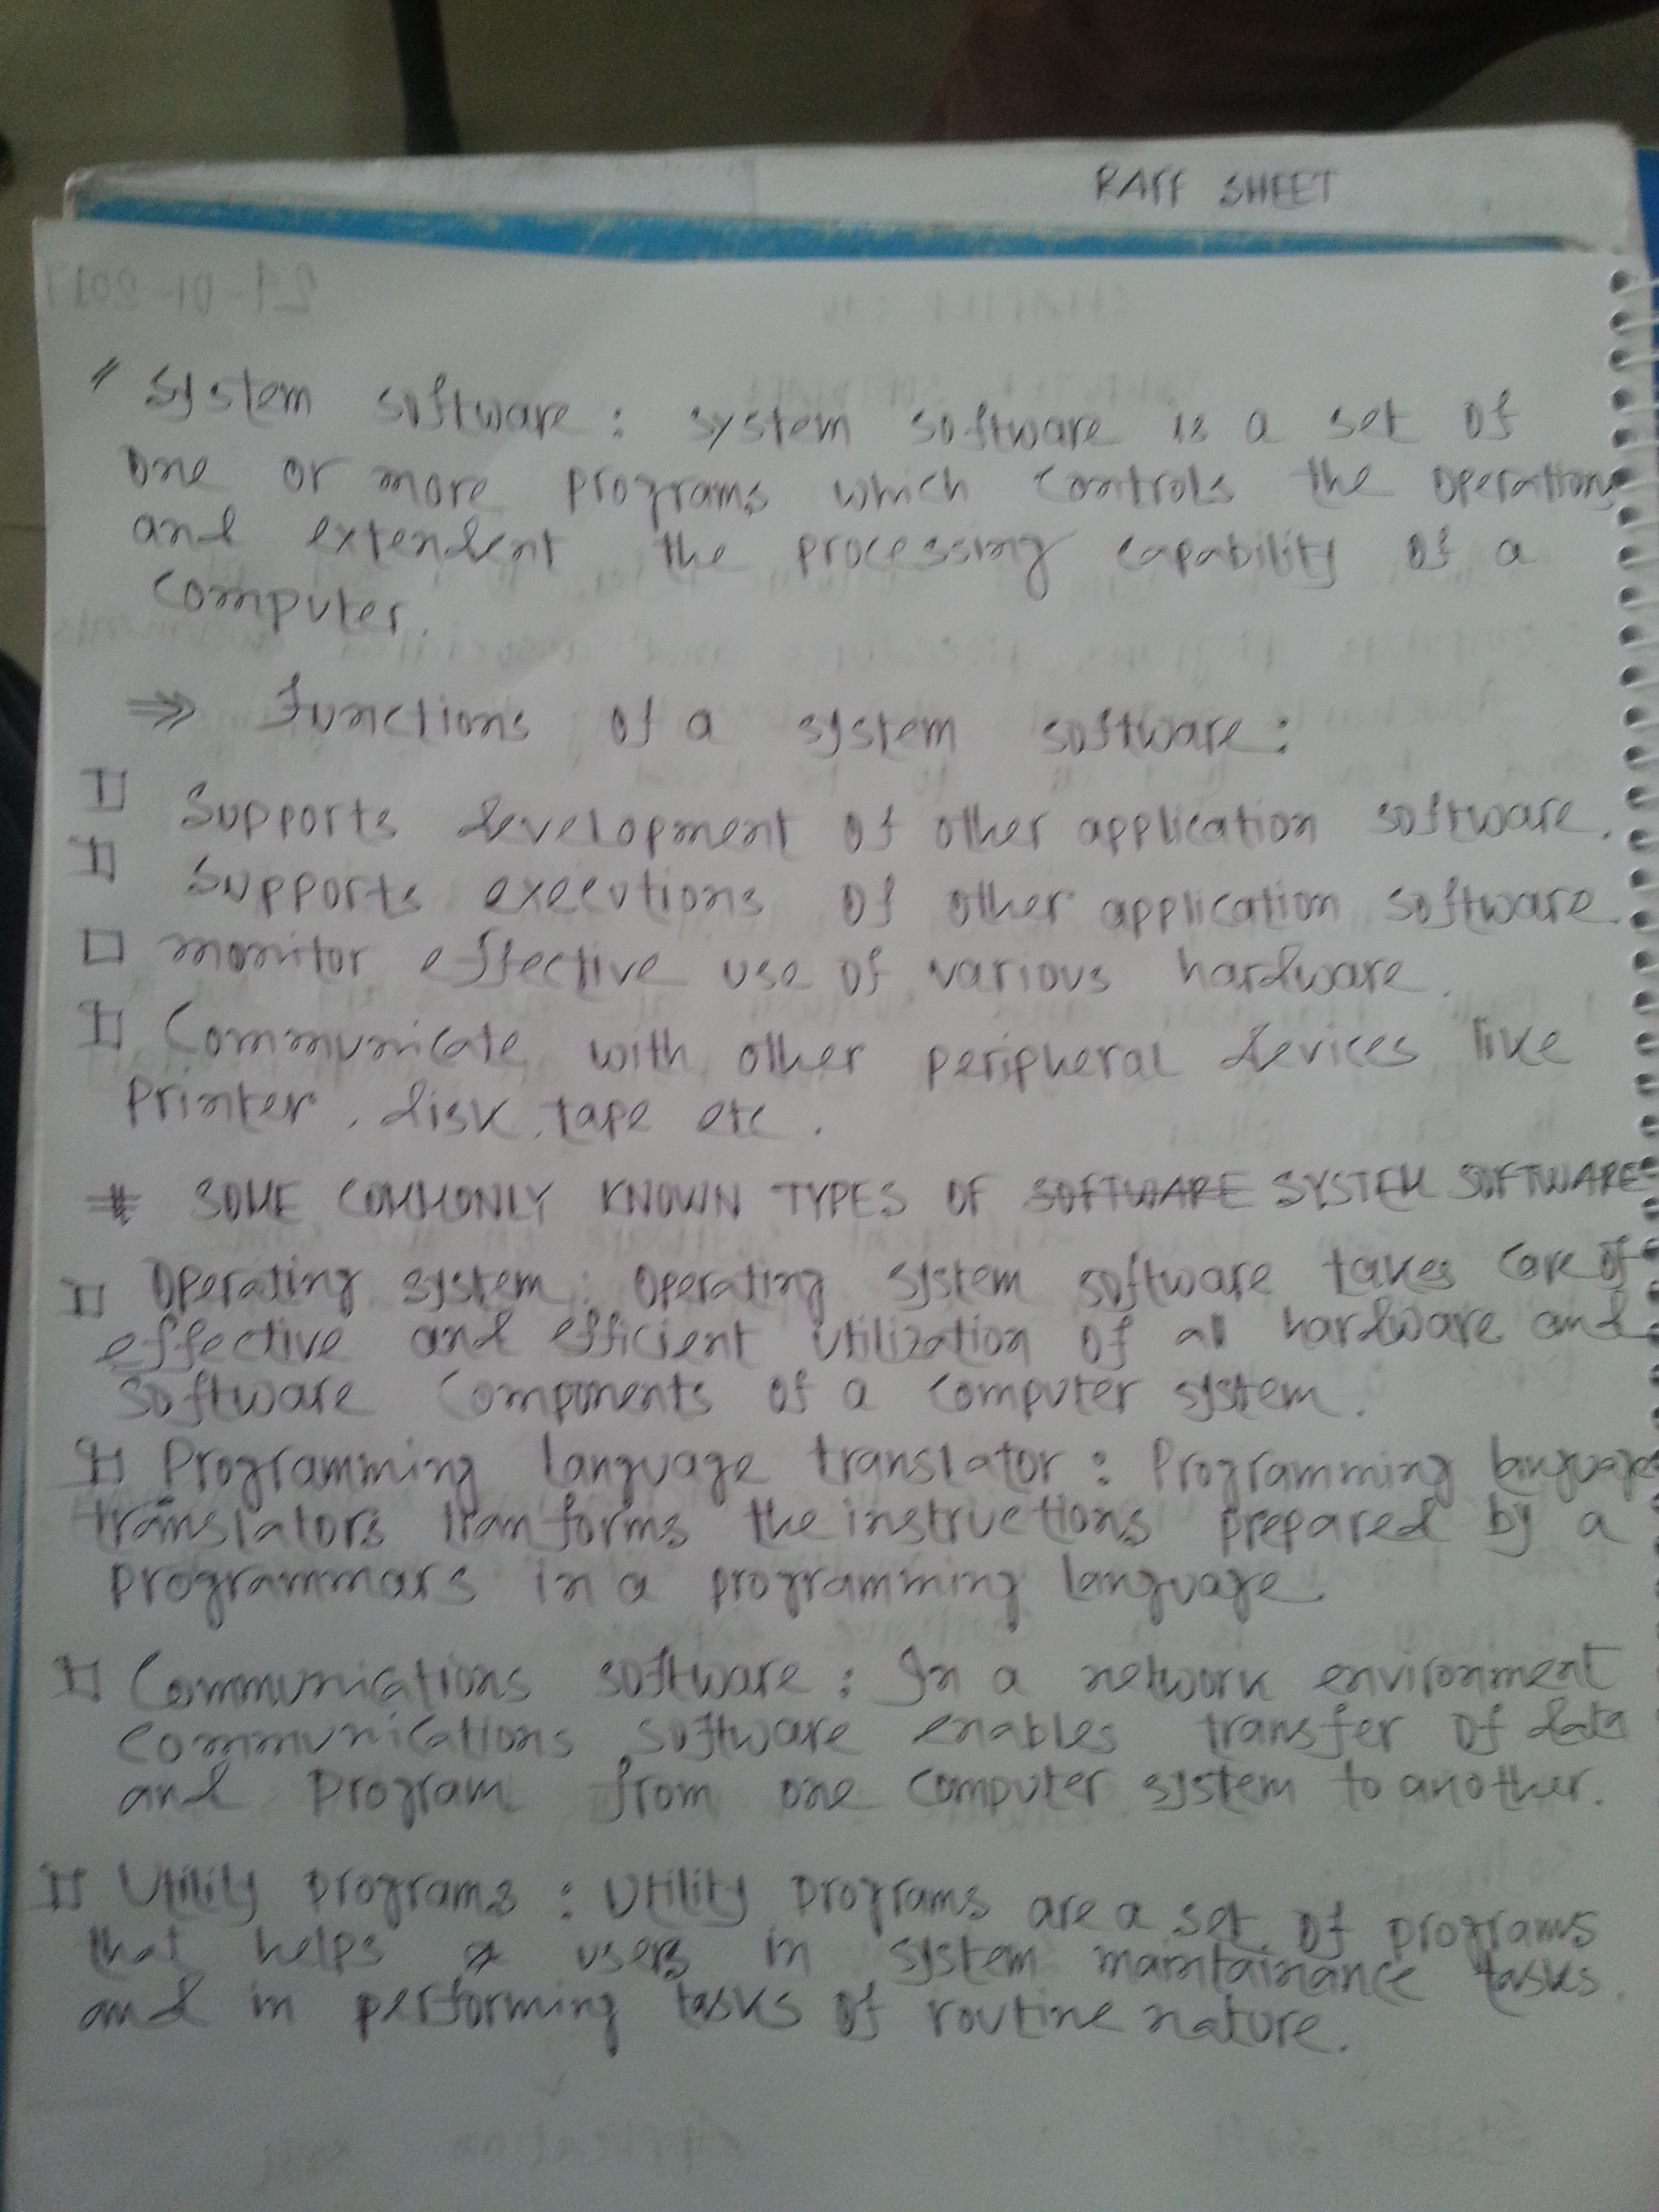 RAFF SHEET
" System software : system software is a set of
one or more programs which controls the operations
and extendent the processing capability of a
computer.
⇒ Functions of a system software :
□ Supports development of other application software.
□ Supports executions of other application software.
□ monitor effective use of various hardware.
□ Communicate with other peripheral devices like
printer, disk, tape etc.
# SOME COMMONLY KNOWN TYPES OF SOFTWARE SYSTEM SOFTWARE
□ Operating system : Operating system software takes care of
effective and efficient utilization of all hardware and
software components of a computer system.
□ Programming language translator : Programming language
translators tranforms the instructions prepared by a
programmars in a programming language.
□ Communications software : In a network environment
communications software enables transfer of data
and program from one computer system to another.
□ Utility programs : Utility programs are a set of programs
that helps users in system maintainance tasks.
and in performing tasks of routine nature.